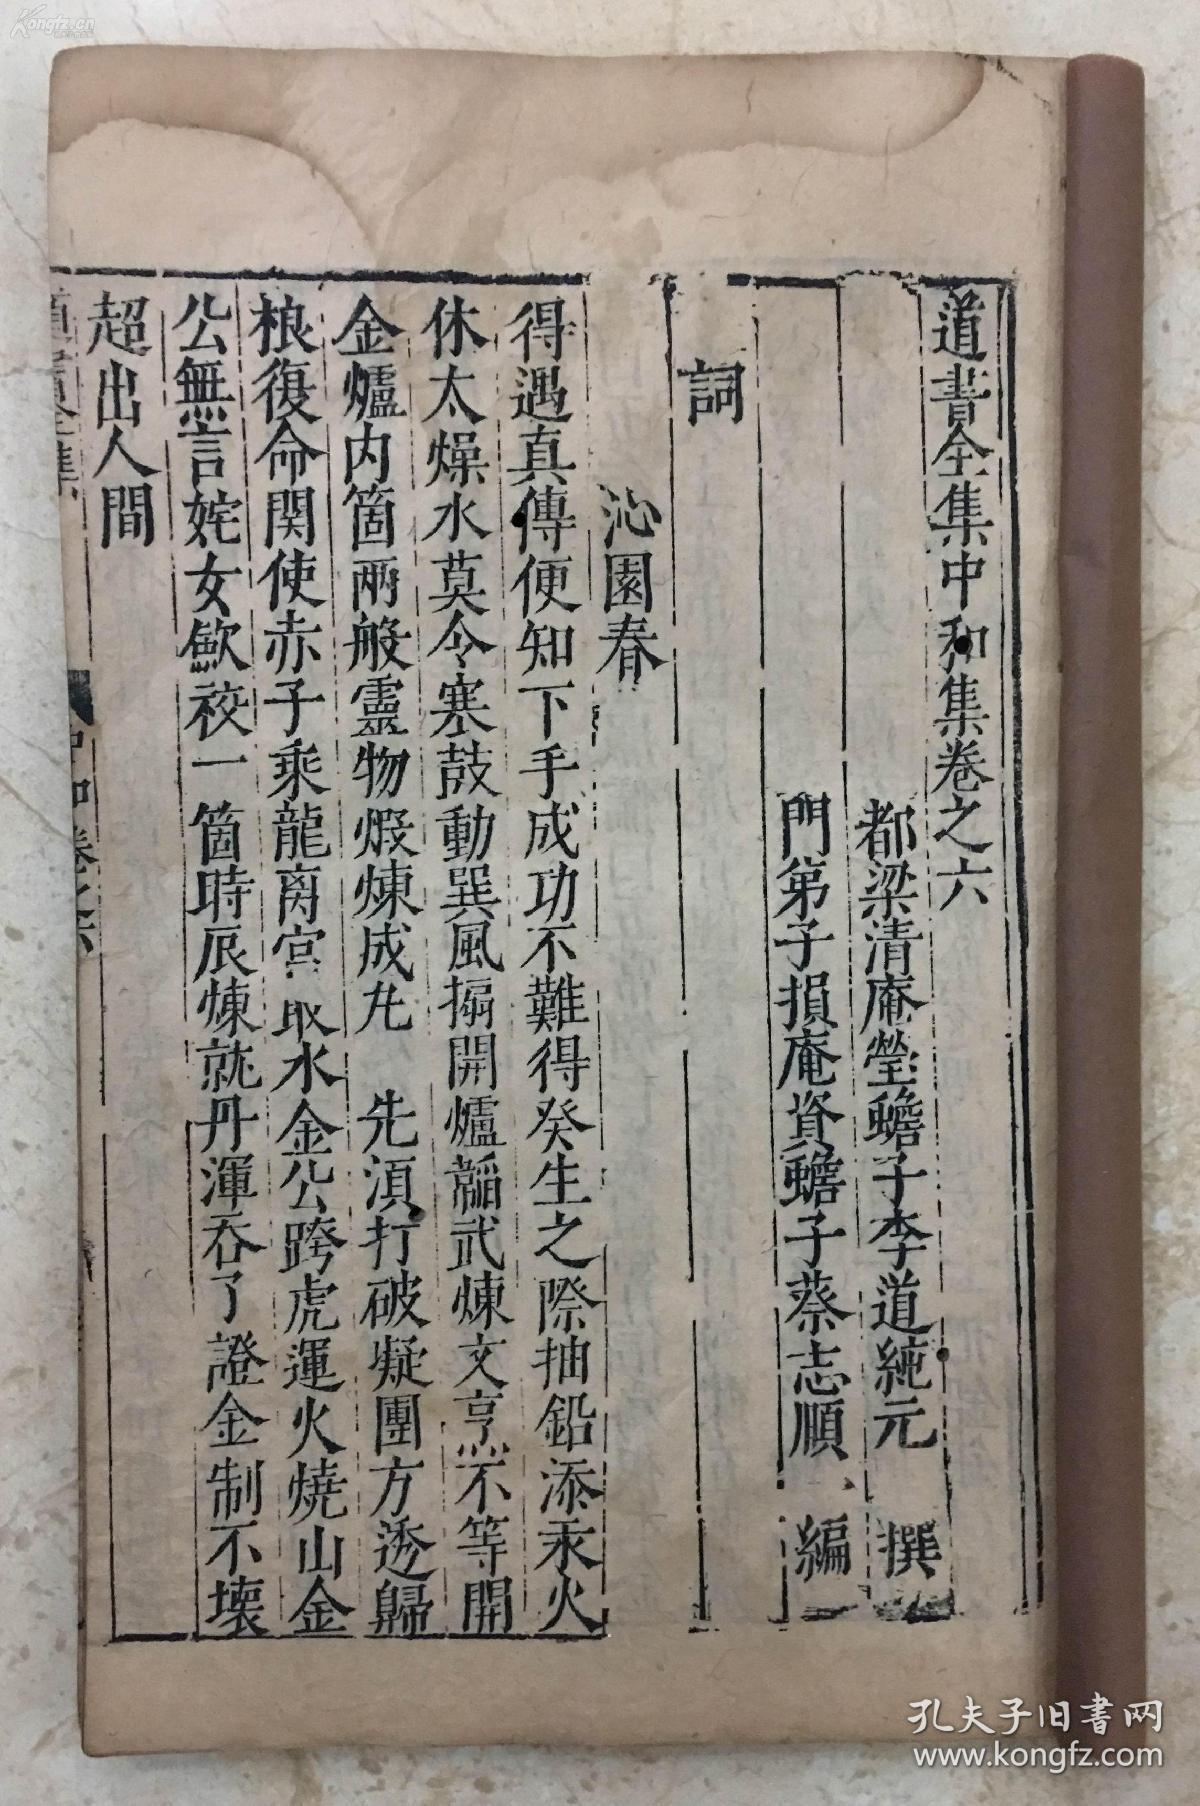 道書全集中和集卷之六
都梁清庵瑩蟾子李道純元 撰
門弟子損庵寶蟾子蔡志順 編
詞
沁園春
得遇真傳便知下手成功不難得癸生之際抽鉛添汞火
休太燥水莫令寒鼓動巽風搧開爐韛武煉文烹不等閒
金爐内箇兩般靈物煅煉成丸 先湏打破疑團方透歸
根復命関使赤子乘龍离宮取水金公跨虎運火燒山金
公無言姹女歛袂一箇時辰煉就丹渾吞了證金剛不壞
超出人間
中和卷之六
Kongfz.cn
孔夫子旧書网
www.kongfz.com